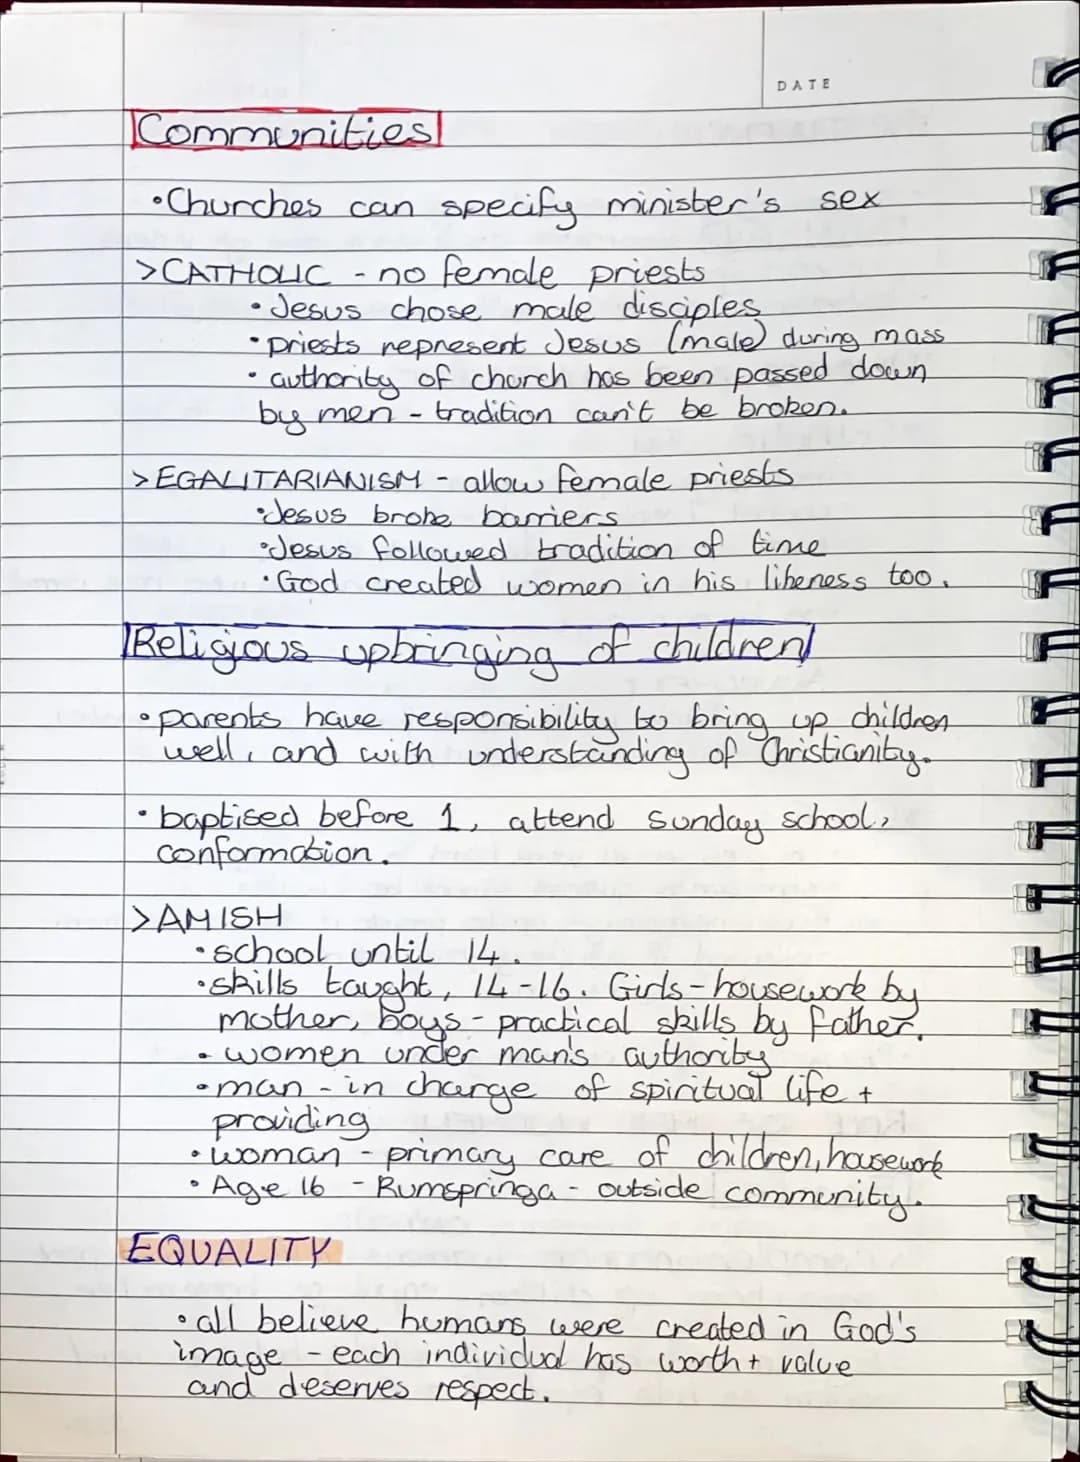 DATE
Communities
•Churches can specify minister's sex
>CATHOLIC - no female priests
•Jesus chose male disciples
•priests represent Jesus (male) during mass
• authority of church has been passed down
by men - tradition can't be broken.
>EGALITARIANISM - allow female priests
•Jesus broke barriers
•Jesus followed tradition of time
•God created women in his likeness too.
Religious upbringing of children
• parents have responsibility to bring up children
well, and with understanding of Christianity.
• baptised before 1, attend Sunday school,
conformation.
>AMISH
•school until 14.
•skills taught, 14-16. Girls - housework by
mother, boys - practical skills by father.
• women under man's authority
•man - in charge of spiritual life +
providing
•woman - primary care of children, housework
• Age 16 - Rumspringa - outside community.
EQUALITY
•all believe humans were created in God's
image - each individual has worth + value
and deserves respect.